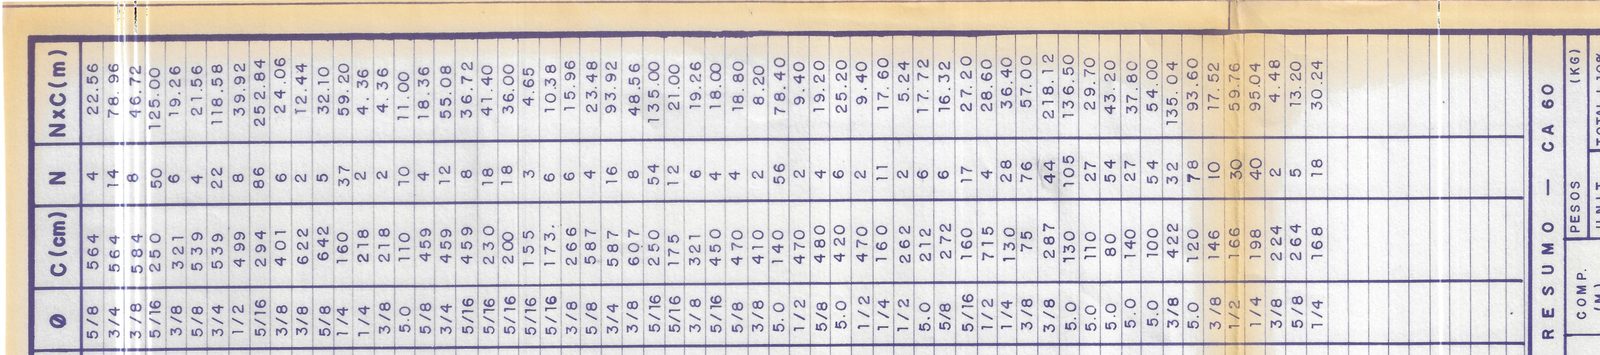 Ø C(cm) N NxC(m)
5/8 564 4 22.56
3/4 564 14 78.96
3/8 584 8 46.72
5/16 250 50 125.00
3/8 321 6 19.26
5/8 539 4 21.56
3/4 539 22 118.58
1/2 499 8 39.92
5/16 294 86 252.84
3/8 401 6 24.06
3/8 622 2 12.44
5/8 642 5 32.10
1/4 160 37 59.20
1/4 218 2 4.36
3/8 218 2 4.36
5.0 110 10 11.00
5/8 459 4 18.36
3/4 459 12 55.08
5/16 459 8 36.72
5/16 230 18 41.40
5/16 200 18 36.00
5/16 155 3 4.65
5/16 173. 6 10.38
3/8 266 6 15.96
5/8 587 4 23.48
3/4 587 16 93.92
3/8 607 8 48.56
5/16 250 54 135.00
5/16 175 12 21.00
3/8 321 6 19.26
5/16 450 4 18.00
3/8 470 4 18.80
3/8 410 2 8.20
5.0 140 56 78.40
1/2 470 2 9.40
5/8 480 4 19.20
5.0 420 6 25.20
1/2 470 2 9.40
1/4 160 11 17.60
1/2 262 2 5.24
5.0 212 6 17.72
5/8 272 6 16.32
5/16 160 17 27.20
1/2 715 4 28.60
1/4 130 28 36.40
3/8 75 76 57.00
3/8 287 44 218.12
5.0 130 105 136.50
5.0 110 27 29.70
5.0 80 54 43.20
5.0 140 27 37.80
5.0 100 54 54.00
3/8 422 32 135.04
5.0 120 78 93.60
3/8 146 10 17.52
1/2 166 30 59.76
1/4 198 40 95.04
3/8 224 2 4.48
5/8 264 5 13.20
1/4 168 18 30.24
RESUMO — CA 60
COMP. PESOS (KG)